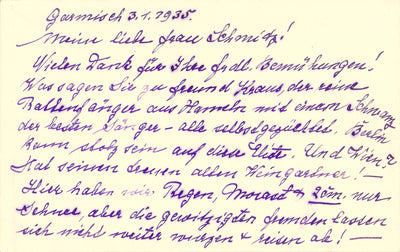 Garmisch 3.1.1935.
Meine liebe Frau Schmitz!
Vielen Dank für Ihre frdl. Bemühungen!
Was sagen Sie zu Freund Kraus, der reine
Rattenfänger aus Hameln mit einem Schwanz
der besten Sänger - alle selbstgezüchtet. Berlin
kann stolz sein auf diese Elite. Und Wien?
Hat seinen treuen alten Weingartner! -
Hier haben wir Regen, Morast & 20m. nur
Schnee, aber die gewitzigten Fremden lassen
sich nicht weiter wurzen & reisen ab! -